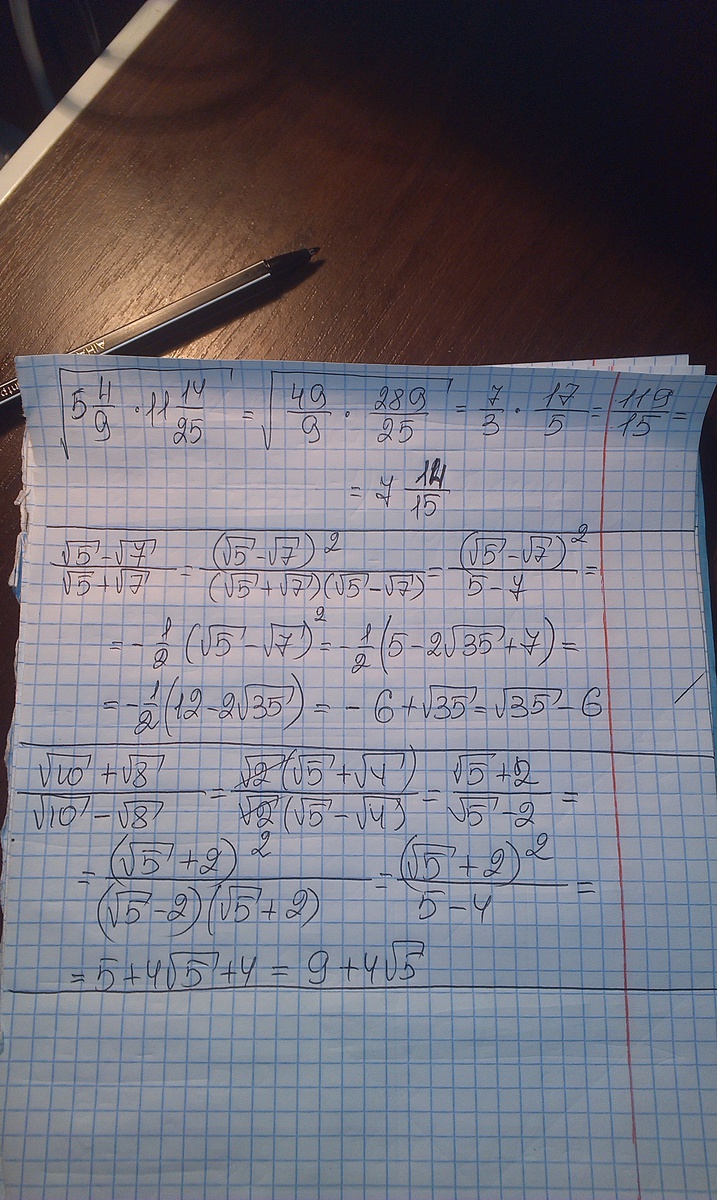 √(5 4/9 · 11 14/25) = √(49/9 · 289/25) = 7/3 · 17/5 = 119/15 =
= 7 14/15
(√5 - √7)/(√5 + √7) = (√5 - √7)²/((√5 + √7)(√5 - √7)) = (√5 - √7)²/(5 - 7) =
= -1/2 (√5 - √7)² = -1/2 (5 - 2√35 + 7) =
= -1/2 (12 - 2√35) = - 6 + √35 = √35 - 6
(√10 + √8)/(√10 - √8) = √2(√5 + √4)/(√2(√5 - √4)) = (√5 + 2)/(√5 - 2) =
= (√5 + 2)²/((√5 - 2)(√5 + 2)) = (√5 + 2)²/(5 - 4) =
= 5 + 4√5 + 4 = 9 + 4√5